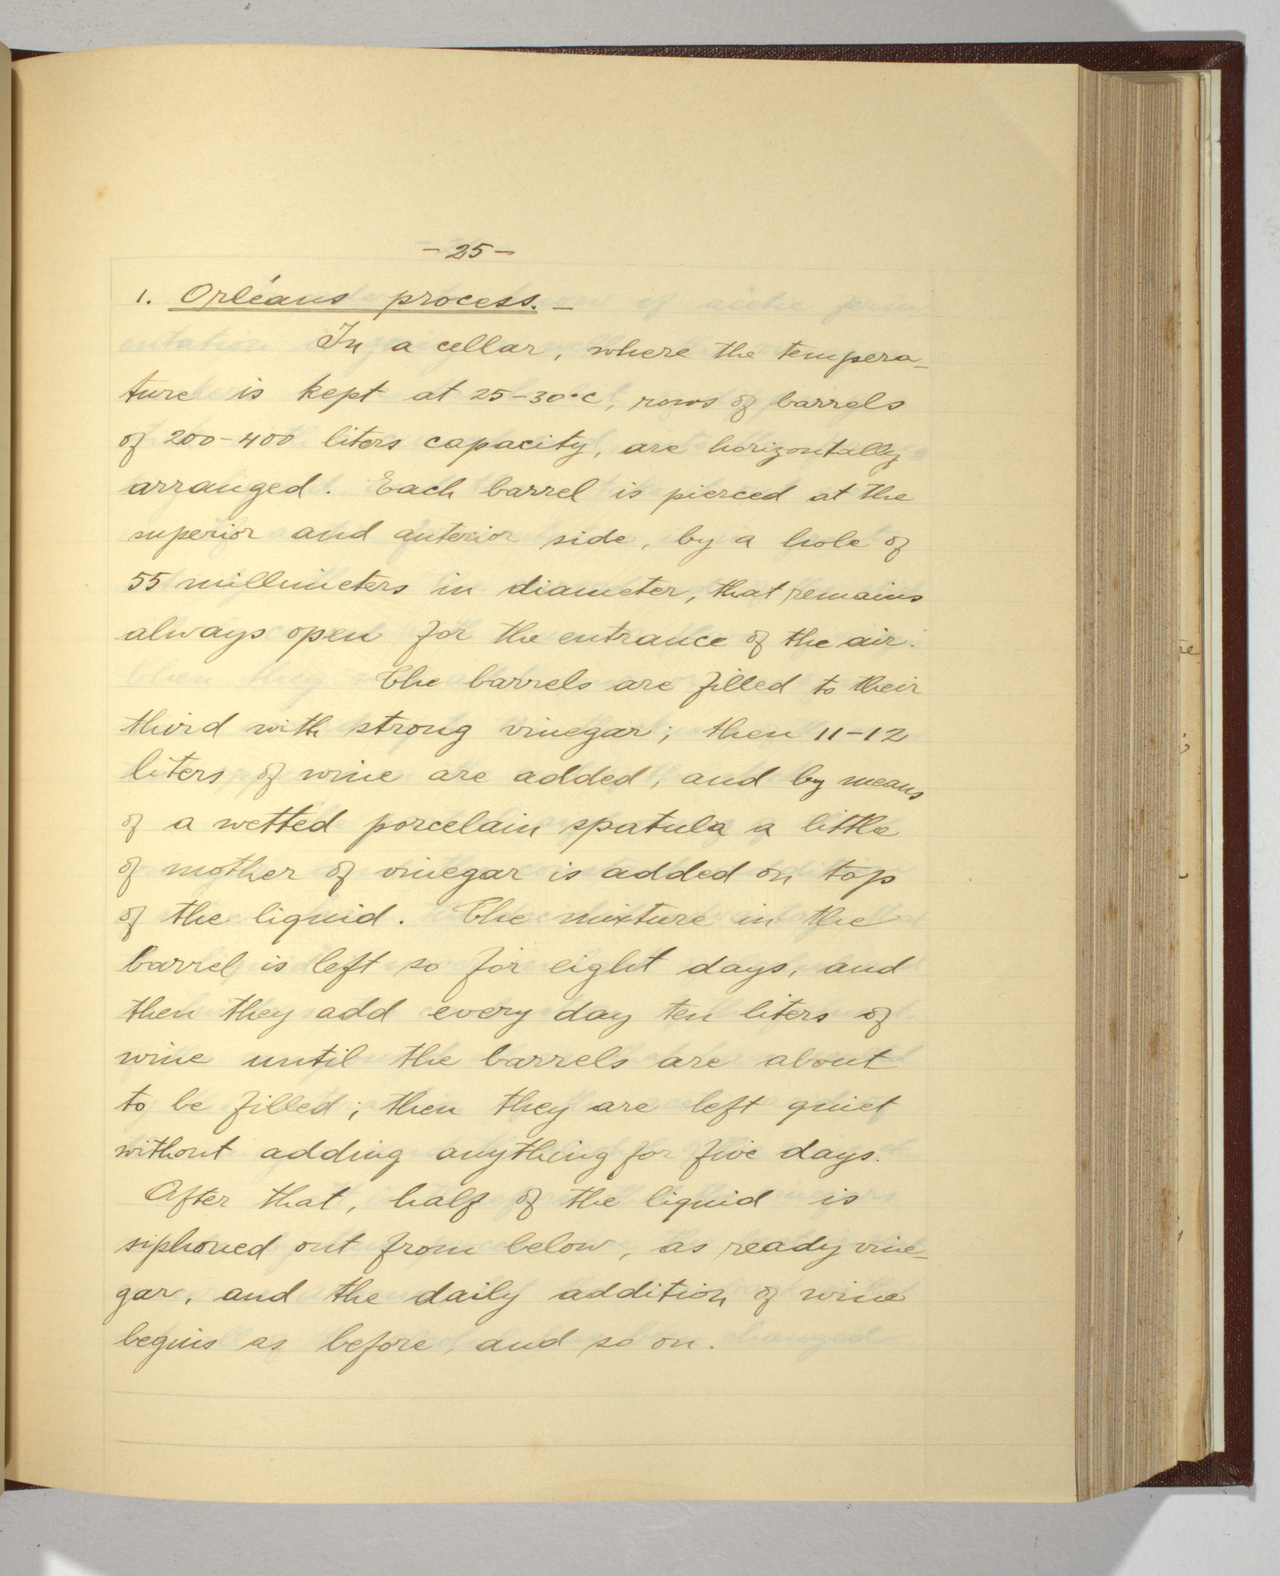 - 25 -
1. Orléans process. -
In a cellar, where the tempera-
ture is kept at 25-30°c, rows of barrels
of 200-400 liters capacity, are horizontally
arranged. Each barrel is pierced at the
superior and anterior side, by a hole of
55 millimeters in diameter, that remains
always open for the entrance of the air.
The barrels are filled to their
third with strong vinegar; then 11-12
liters of wine are added, and by means
of a wetted porcelain spatula a little
of mother of vinegar is added on top
of the liquid. The mixture in the
barrel is left so for eight days, and
then they add every day ten liters of
wine until the barrels are about
to be filled; then they are left quiet
without adding anything for five days.
After that, half of the liquid is
siphoned out from below, as ready vine-
gar, and the daily addition of wine
begins as before and so on.